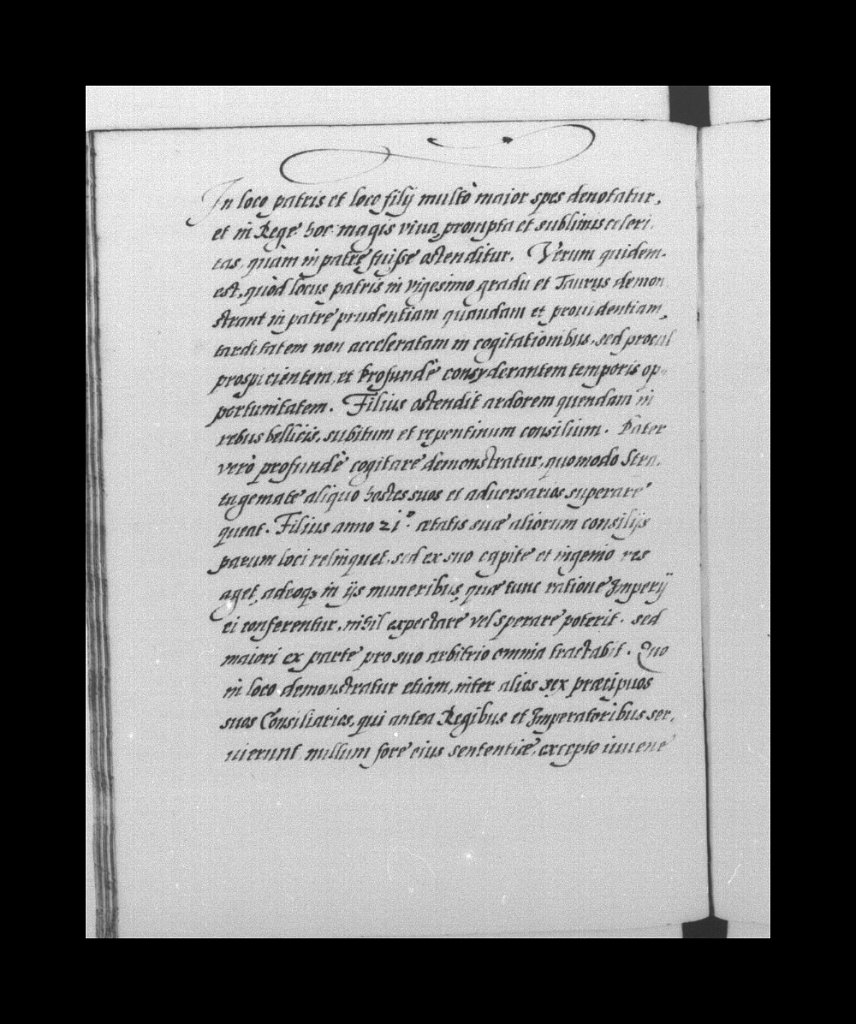 In loco patris et loco filij multò maior spes denotatur,
et in Rege hoc magis viva, prompta et sublimis celeri
tas, quàm in patre fuisse ostenditur. Verum quidem
est, quòd locus patris in vigesimo gradu et Taurus demon
strant in patre prudentiam quandam et providentiam,
tarditatem non acceleratam in cogitationibus, sed procul
prospicientem, et profundè consyderantem temporis op-
portunitatem. Filius ostendit ardorem quendam in
rebus bellicis, subitum et repentinum consilium. Pater
verò profundè cogitare demonstratur, quomodo Stra,
tagemate aliquo hostes suos et adversarios superare
queat. Filius anno 21º ætatis suæ aliorum consilijs
parum loci relinquet, sed ex suo capite et ingenio res
aget, adeoq3 in ijs muneribus, quæ tunc ratione Imperij
ei conferentur, nihil expectare vel sperare poterit. sed
maiori ex parte pro suo arbitrio omnia tractabit. Quo
in loco demonstratur etiam, inter alios sex præcipuos
suos Consiliarios, qui antea Regibus et Imperatoribus ser,
uierunt, nullum fore eius sententiæ, excepto iuuene